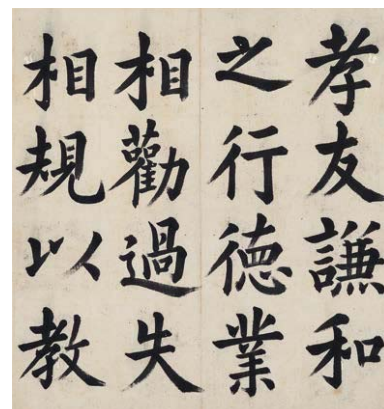 孝友謙和
之行德業
相勸過失
相規以教